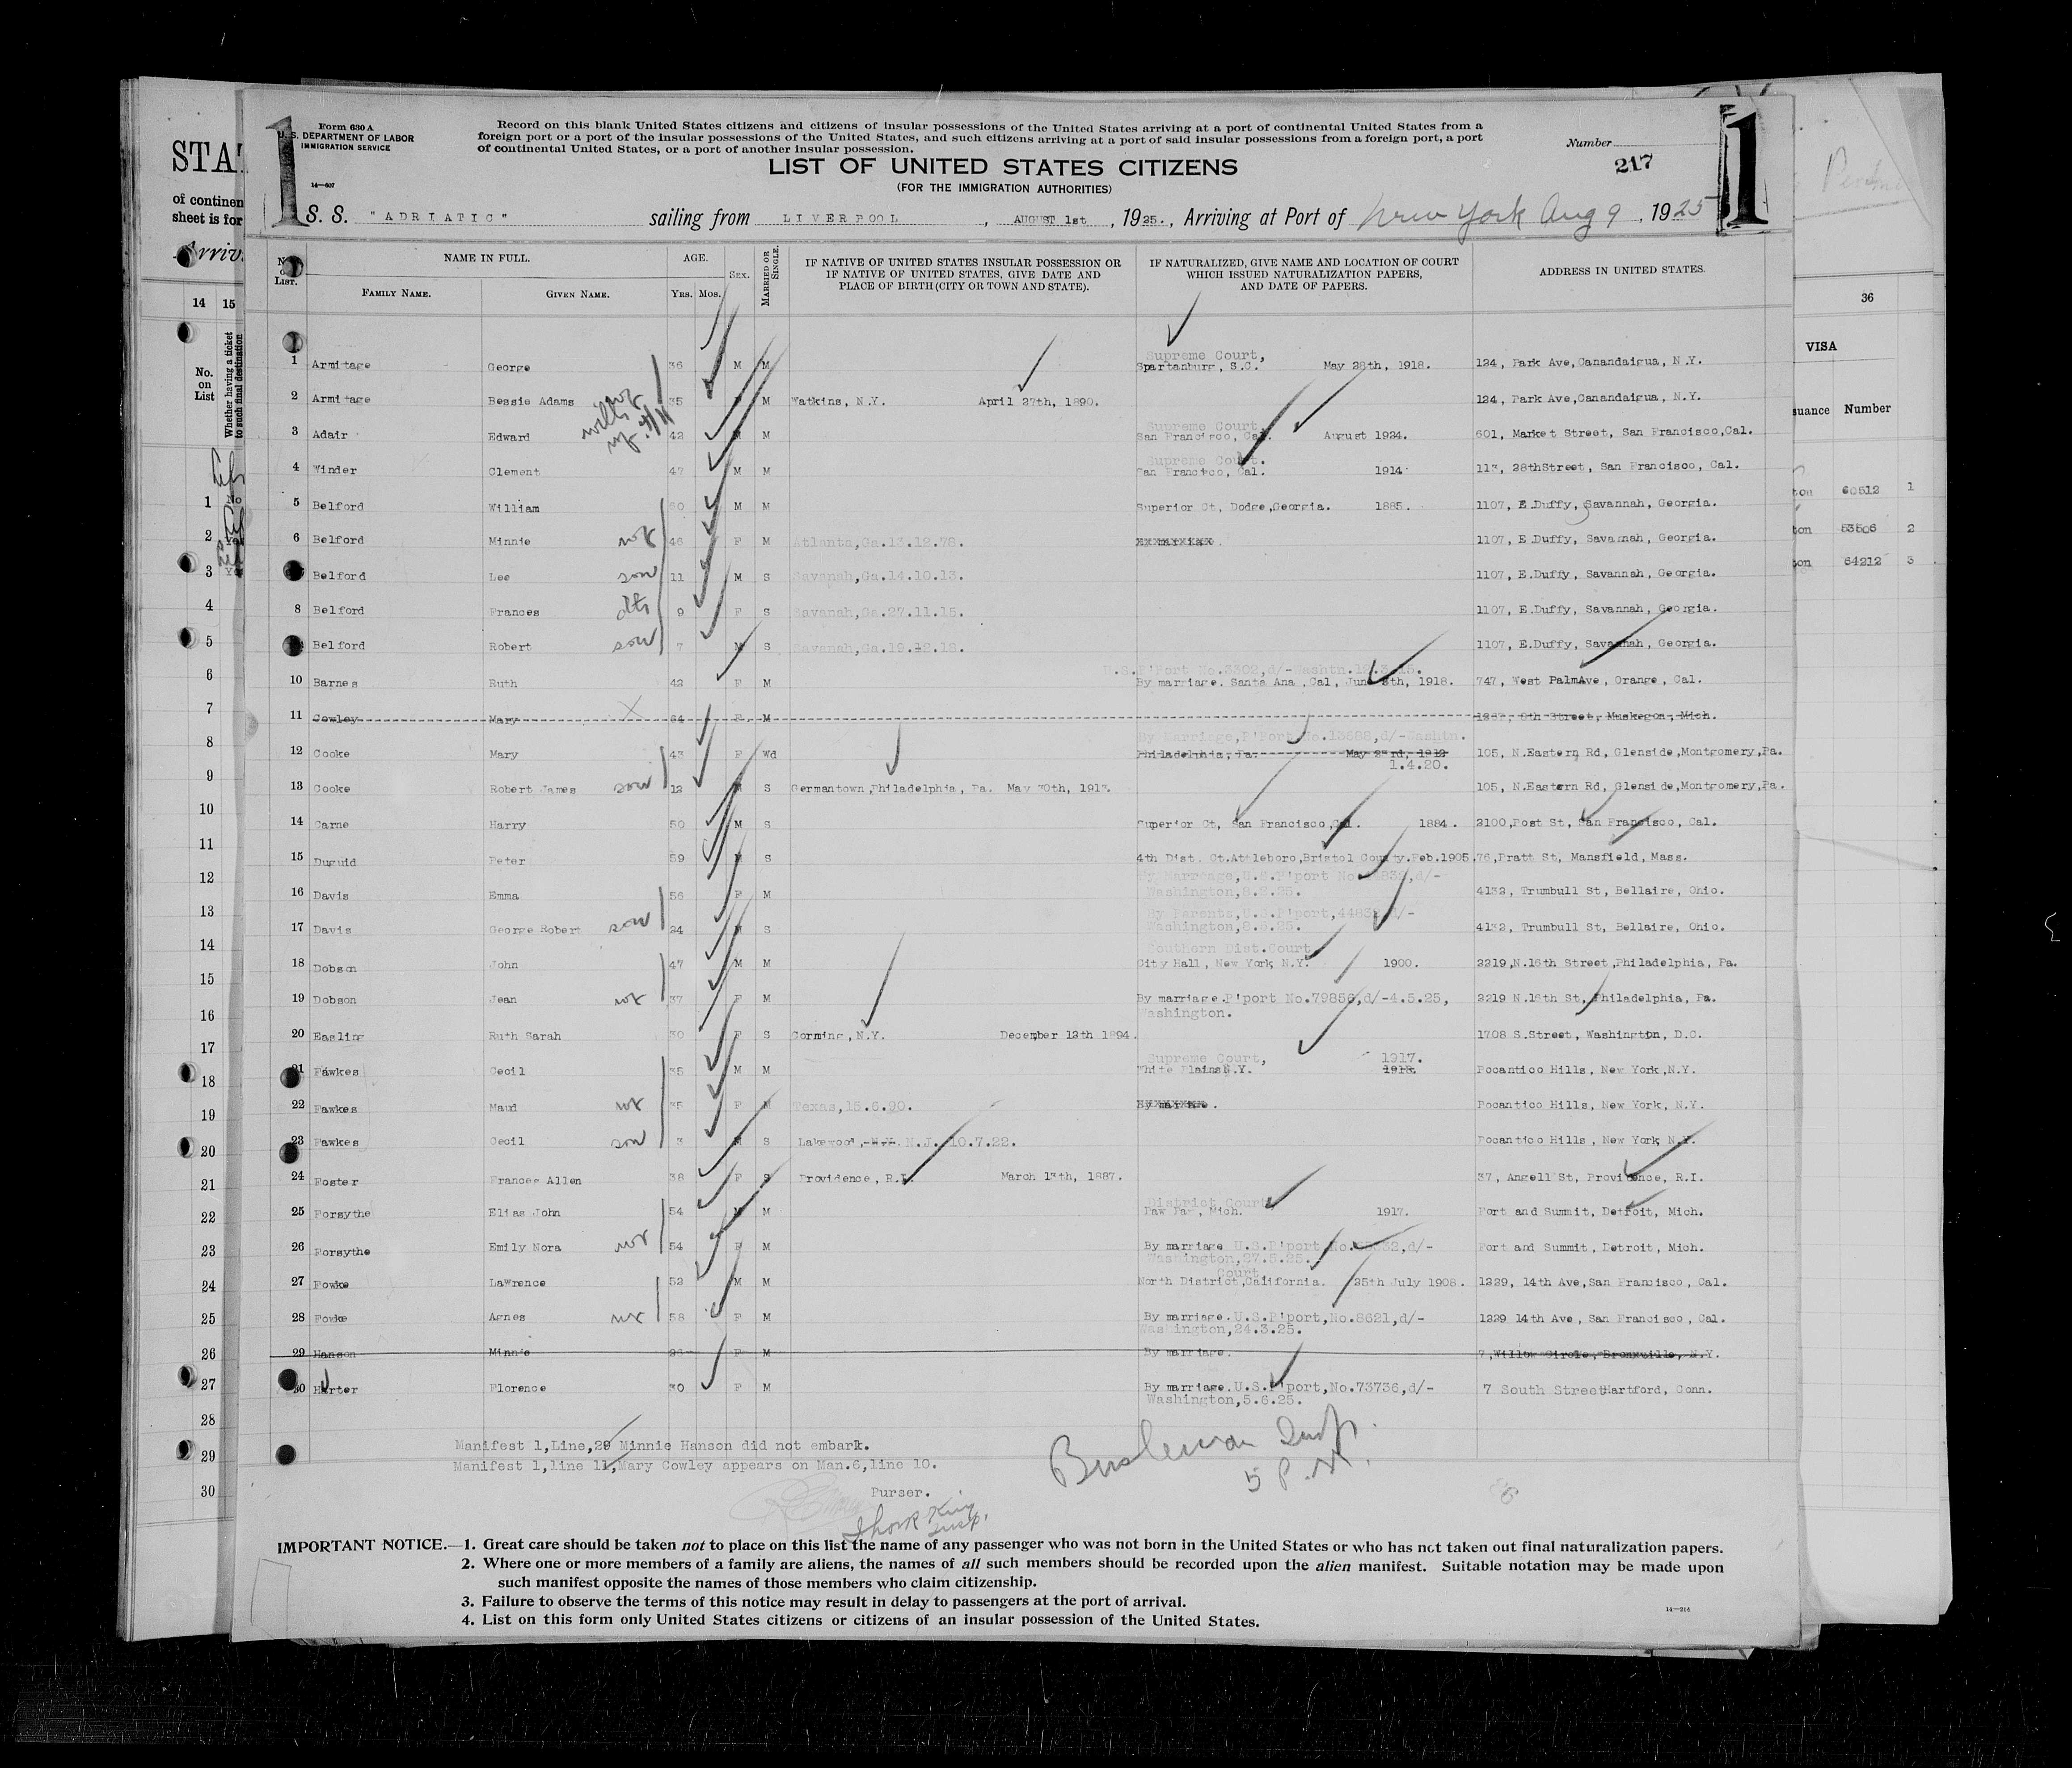 Form 630 A
U. S. DEPARTMENT OF LABOR
IMMIGRATION SERVICE
14—607
Record on this blank United States citizens and citizens of insular possessions of the United States arriving at a port of continental United States from a
foreign port or a port of the insular possessions of the United States, and such citizens arriving at a port of said insular possessions from a foreign port, a port
of continental United States, or a port of another insular possession.
Number
217
1 1
LIST OF UNITED STATES CITIZENS
(FOR THE IMMIGRATION AUTHORITIES)
S. S. "ADRIATIC" sailing from LIVERPOOL, AUGUST 1st, 1925., Arriving at Port of New York Aug 9, 1925
No. on List. NAME IN FULL. AGE. Sex. Married or Single. IF NATIVE OF UNITED STATES INSULAR POSSESSION OR IF NATIVE OF UNITED STATES, GIVE DATE AND PLACE OF BIRTH (CITY OR TOWN AND STATE). IF NATURALIZED, GIVE NAME AND LOCATION OF COURT WHICH ISSUED NATURALIZATION PAPERS, AND DATE OF PAPERS. ADDRESS IN UNITED STATES.
Family Name. Given Name. Yrs. Mos.
1 Armitage George 36 M M Supreme Court, Spartanburg, S.C. May 28th, 1918. 124, Park Ave,Canandaigua, N.Y.
2 Armitage Bessie Adams 35 F M Watkins, N.Y. April 27th, 1890. 124, Park Ave,Canandaigua, N.Y.
3 Adair Edward 42 M M Supreme Court, San Francisco, Cal. August 1924. 601, Market Street, San Francisco,Cal.
4 Winder Clement 47 M M Supreme Court. San Francisco, Cal. 1914 113, 28thStreet, San Francisco, Cal.
5 Belford William 60 M M Superior Ct, Dodge,Georgia. 1885. 1107, E.Duffy, Savannah, Georgia.
6 Belford Minnie 46 F M Atlanta,Ga.13.12.78. 1107, E.Duffy, Savannah, Georgia.
Belford Lee son 11 M S Savanah,Ga.14.10.13. 1107, E.Duffy, Savannah, Georgia.
8 Belford Frances 9 F S Savanah,Ga.27.11.15. 1107, E.Duffy, Savannah, Georgia.
Belford Robert son 7 M S Savanah,Ga.19.12.18. 1107, E.Duffy, Savannah, Georgia.
10 Barnes Ruth 42 F M U.S.P'Port No.3302,d/-Washtn. By marriage. Santa Ana, Cal, June 8th, 1918. 747, West PalmAve, Orange, Cal.
11 Cowley Mary 64 F M 8th Street, Muskegon, Mich.
12 Cooke Mary 43 F Wd By Marriage,P'Port No.13688,d/-Washtn. Philadelphia, Pa. May 23rd, 1912 1.4.20. 105, N.Eastern Rd, Glenside,Montgomery,Pa.
13 Cooke Robert James son 12 M S Germantown,Philadelphia, Pa. May 30th, 1913. 105, N.Eastern Rd, Glenside,Montgomery,Pa.
14 Carne Harry 50 M S Superior Ct, San Francisco,Cal. 1884. 2100,Post St, San Francisco, Cal.
15 Duguid Peter 59 M S 4th Dist. Ct.Attleboro,Bristol County.Feb.1905. 76,Pratt St, Mansfield, Mass.
16 Davis Emma 56 F M By Marreage,U.S.P'port No.44832,d/- Washington,8.5.25. 4132, Trumbull St, Bellaire, Ohio.
17 Davis George Robert son 24 M S By Parents,U.S.P'port,44832,d/- Washington,8.5.25. 4132, Trumbull St, Bellaire, Ohio.
18 Dobson John 47 M M Southern Dist.Court City Hall, New York, N.Y. 1900. 2219,N.16th Street,Philadelphia, Pa.
19 Dobson Jean 37 F M By marriage.P'port No.79856,d/-4.5.25, Washington. 2219 N.16th St, Philadelphia, Pa.
20 Easling Ruth Sarah 30 F S Corning, N.Y. December 12th 1894. 1708 S.Street, Washington, D.C.
21 Fawkes Cecil 35 M M Supreme Court, White Plains N.Y. 1917. 1918. Pocantico Hills, New York,N.Y.
22 Fawkes Maud 35 F M Texas,15.6.90. By marriage. Pocantico Hills, New York, N.Y.
23 Fawkes Cecil son 3 M S Lakewood, N.Y. N.J. 10.7.22. Pocantico Hills, New York, N.Y.
24 Foster Frances Allen 38 F S Providence, R.I. March 13th, 1887. 37, Angell St, Providence, R.I.
25 Forsythe Elias John 54 M M District Court Paw Paw, Mich. 1917. Fort and Summit, Detroit, Mich.
26 Forsythe Emily Nora 54 F M By marriage U.S.P'port, d/- Washington,27.5.25. Fort and Summit, Detroit, Mich.
27 Fowke Lawrence 52 M M Court North District,California. 25th July 1908. 1229, 14th Ave,San Francisco, Cal.
28 Fowke Agnes 58 F M By marriage. U.S.P'port,No.8621,d/- Washington,24.3.25. 1229 14th Ave, San Francisco, Cal.
29 Hanson Minnie F M By marriage. 7,Willow Circle, Bronxville, N.Y.
30 Harter Florence 30 F M By marriage. U.S.P'port,No.73736,d/- Washington,5.6.25. 7 South Street Hartford, Conn.
Manifest 1,Line,29 Minnie Hanson did not embark.
Manifest 1,line 11,Mary Cowley appears on Man.6,line 10.
Purser.
5 P.M.
IMPORTANT NOTICE.—1. Great care should be taken not to place on this list the name of any passenger who was not born in the United States or who has not taken out final naturalization papers.
2. Where one or more members of a family are aliens, the names of all such members should be recorded upon the alien manifest. Suitable notation may be made upon
such manifest opposite the names of those members who claim citizenship.
3. Failure to observe the terms of this notice may result in delay to passengers at the port of arrival.
4. List on this form only United States citizens or citizens of an insular possession of the United States.
14—216
STA
of continen
sheet is for
14 15
No. on List
Whether having a ticket to such final destination
1 No
2
3
4
5
6
7
8
9
10
11
12
13
14
15
16
17
18
19
20
21
22
23
24
25
26
27
28
29
30
36
VISA
suance Number
ton 60512 1
ton 53506 2
ton 64212 3